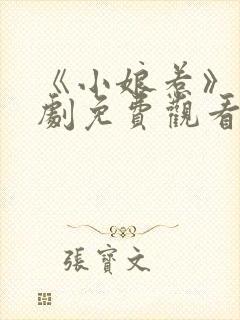 《小娘惹》
劇免費觀看
張寶文